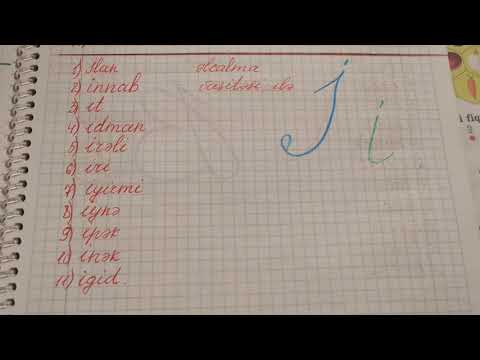 1) İlan
əlcalma
2) innab
vasitəsi ilə
3) it
4) idman
5) irəli
6) iri
7) iyirmi
8) iynə
9) ipək
10) inək
11) igid
İ i
i fiq